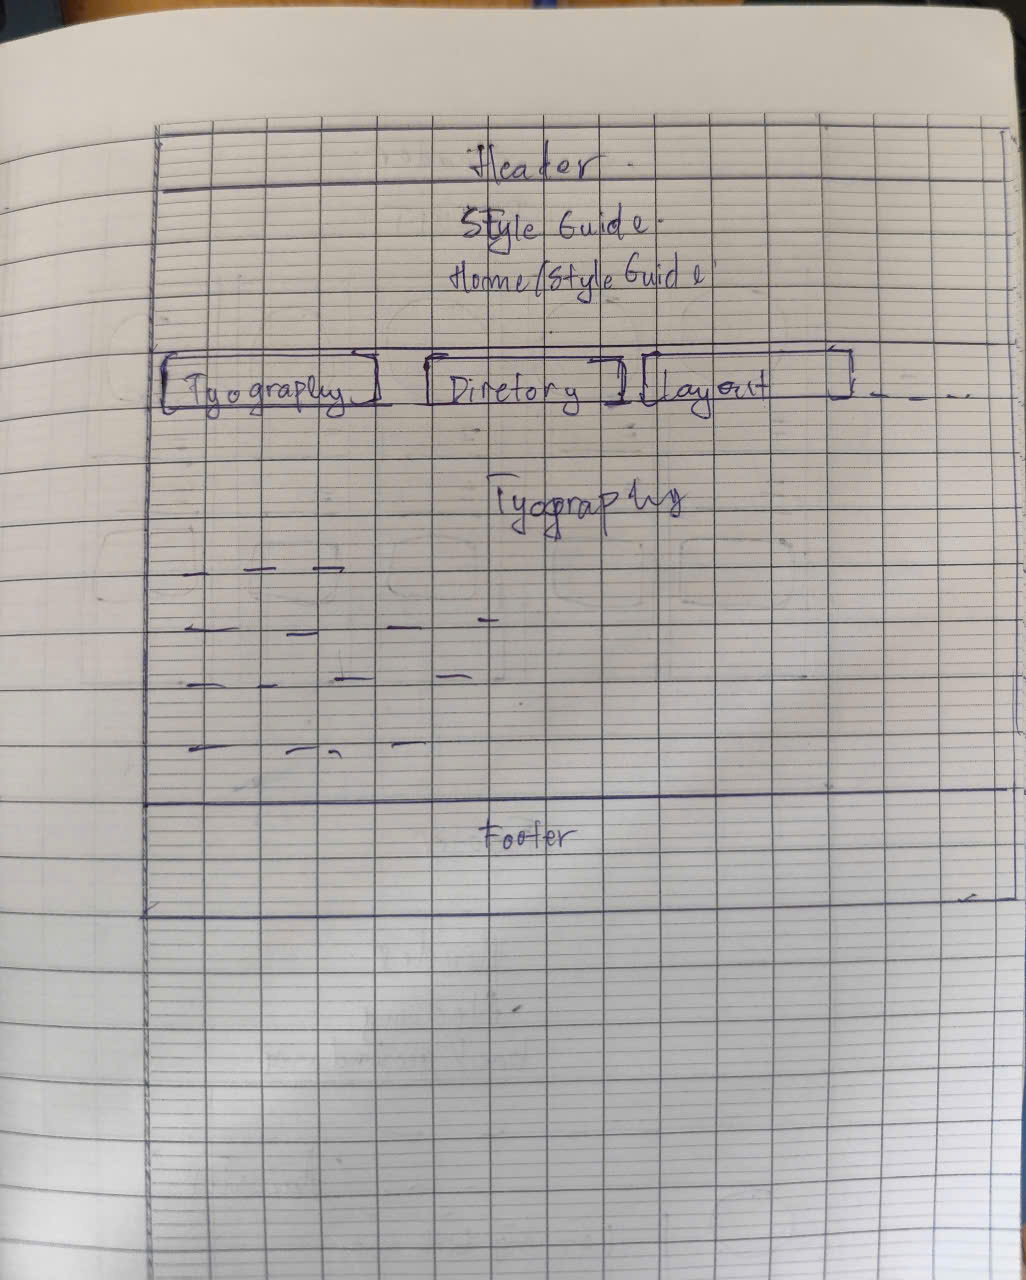 Header
Style Guide
Home/Style Guide
Tyography Diretory Layout
Tyography
Footer